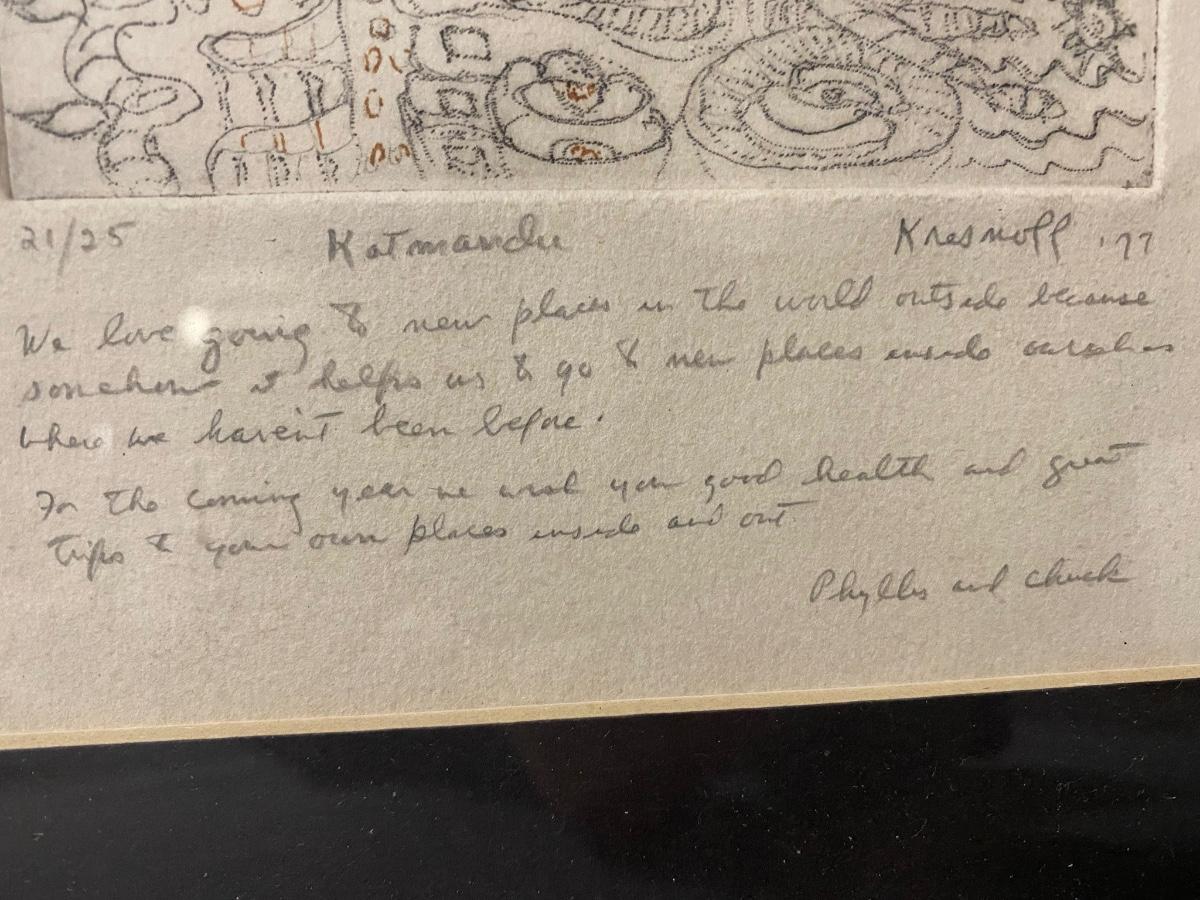 21/25 Katmandu Kresnoff '77
We love going to new places in the world outside because
somehow it helps us to go to new places inside ourselves
where we haven't been before.
For the coming year we wish you good health and great
trips to your own places inside and out
Phyllis and Chuck